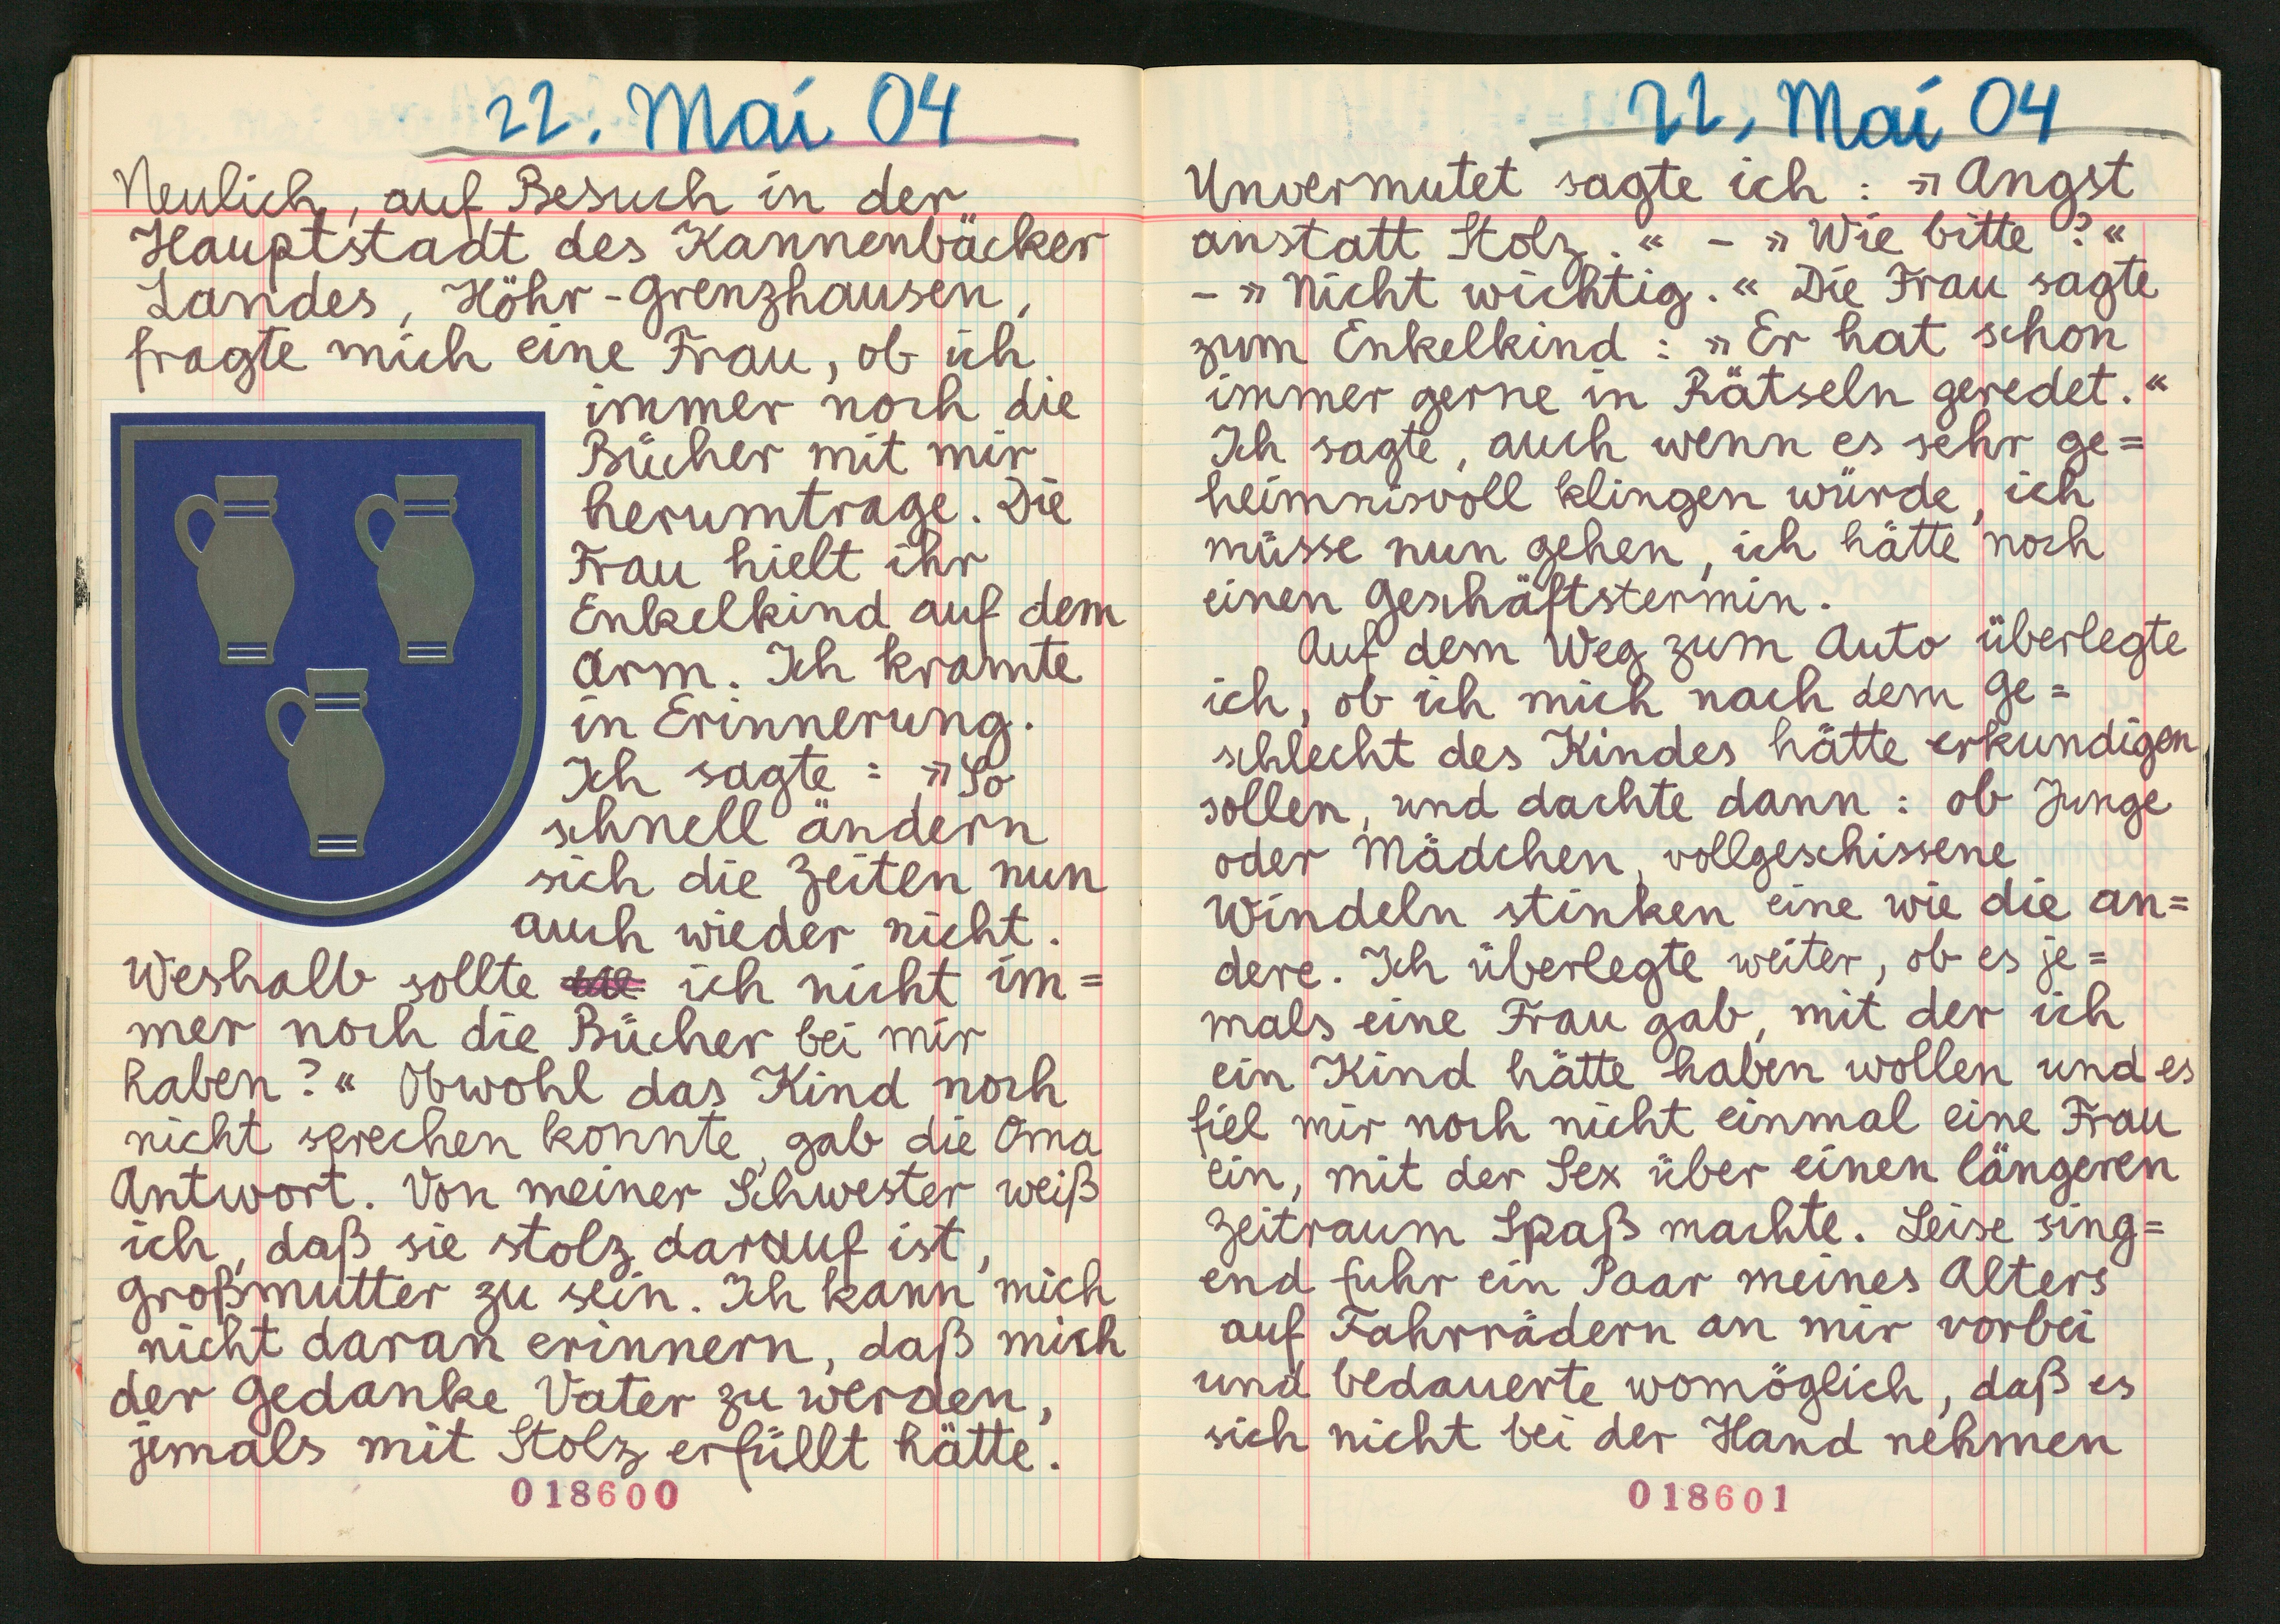 22. Mai 04
Neulich, auf Besuch in der
Hauptstadt des Kannenbäcker
Landes, Höhr-Grenzhausen,
fragte mich eine Frau, ob ich
immer noch die
Bücher mit mir
herumtrage. Die
Frau hielt ihr
Enkelkind auf dem
Arm. Ich kramte
in Erinnerung.
Ich sagte: »So
schnell ändern
sich die Zeiten nun
auch wieder nicht.
Weshalb sollte ich nicht im=
mer noch die Bücher bei mir
haben?« Obwohl das Kind noch
nicht sprechen konnte, gab die Oma
Antwort. Von meiner Schwester weiß
ich, daß sie stolz darauf ist,
Großmutter zu sein. Ich kann mich
nicht daran erinnern, daß mich
der Gedanke Vater zu werden,
jemals mit Stolz erfüllt hätte.
018600
22. Mai 04
Unvermutet sagte ich: »Angst
anstatt Stolz.« - »Wie bitte?«
- »Nicht wichtig.« Die Frau sagte
zum Enkelkind: »Er hat schon
immer gerne in Rätseln geredet.«
Ich sagte, auch wenn es sehr ge=
heimnisvoll klingen würde, ich
müsse nun gehen, ich hätte noch
einen Geschäftstermin.
Auf dem Weg zum Auto überlegte
ich, ob ich mich nach dem Ge=
schlecht des Kindes hätte erkundigen
sollen, und dachte dann: ob Junge
oder Mädchen, vollgeschissene
Windeln stinken eine wie die an=
dere. Ich überlegte weiter, ob es je=
mals eine Frau gab, mit der ich
ein Kind hätte haben wollen und es
fiel mir noch nicht einmal eine Frau
ein, mit der Sex über einen längeren
Zeitraum Spaß machte. Leise sing=
end fuhr ein Paar meines Alters
auf Fahrrädern an mir vorbei
und bedauerte womöglich, daß es
sich nicht bei der Hand nehmen
018601